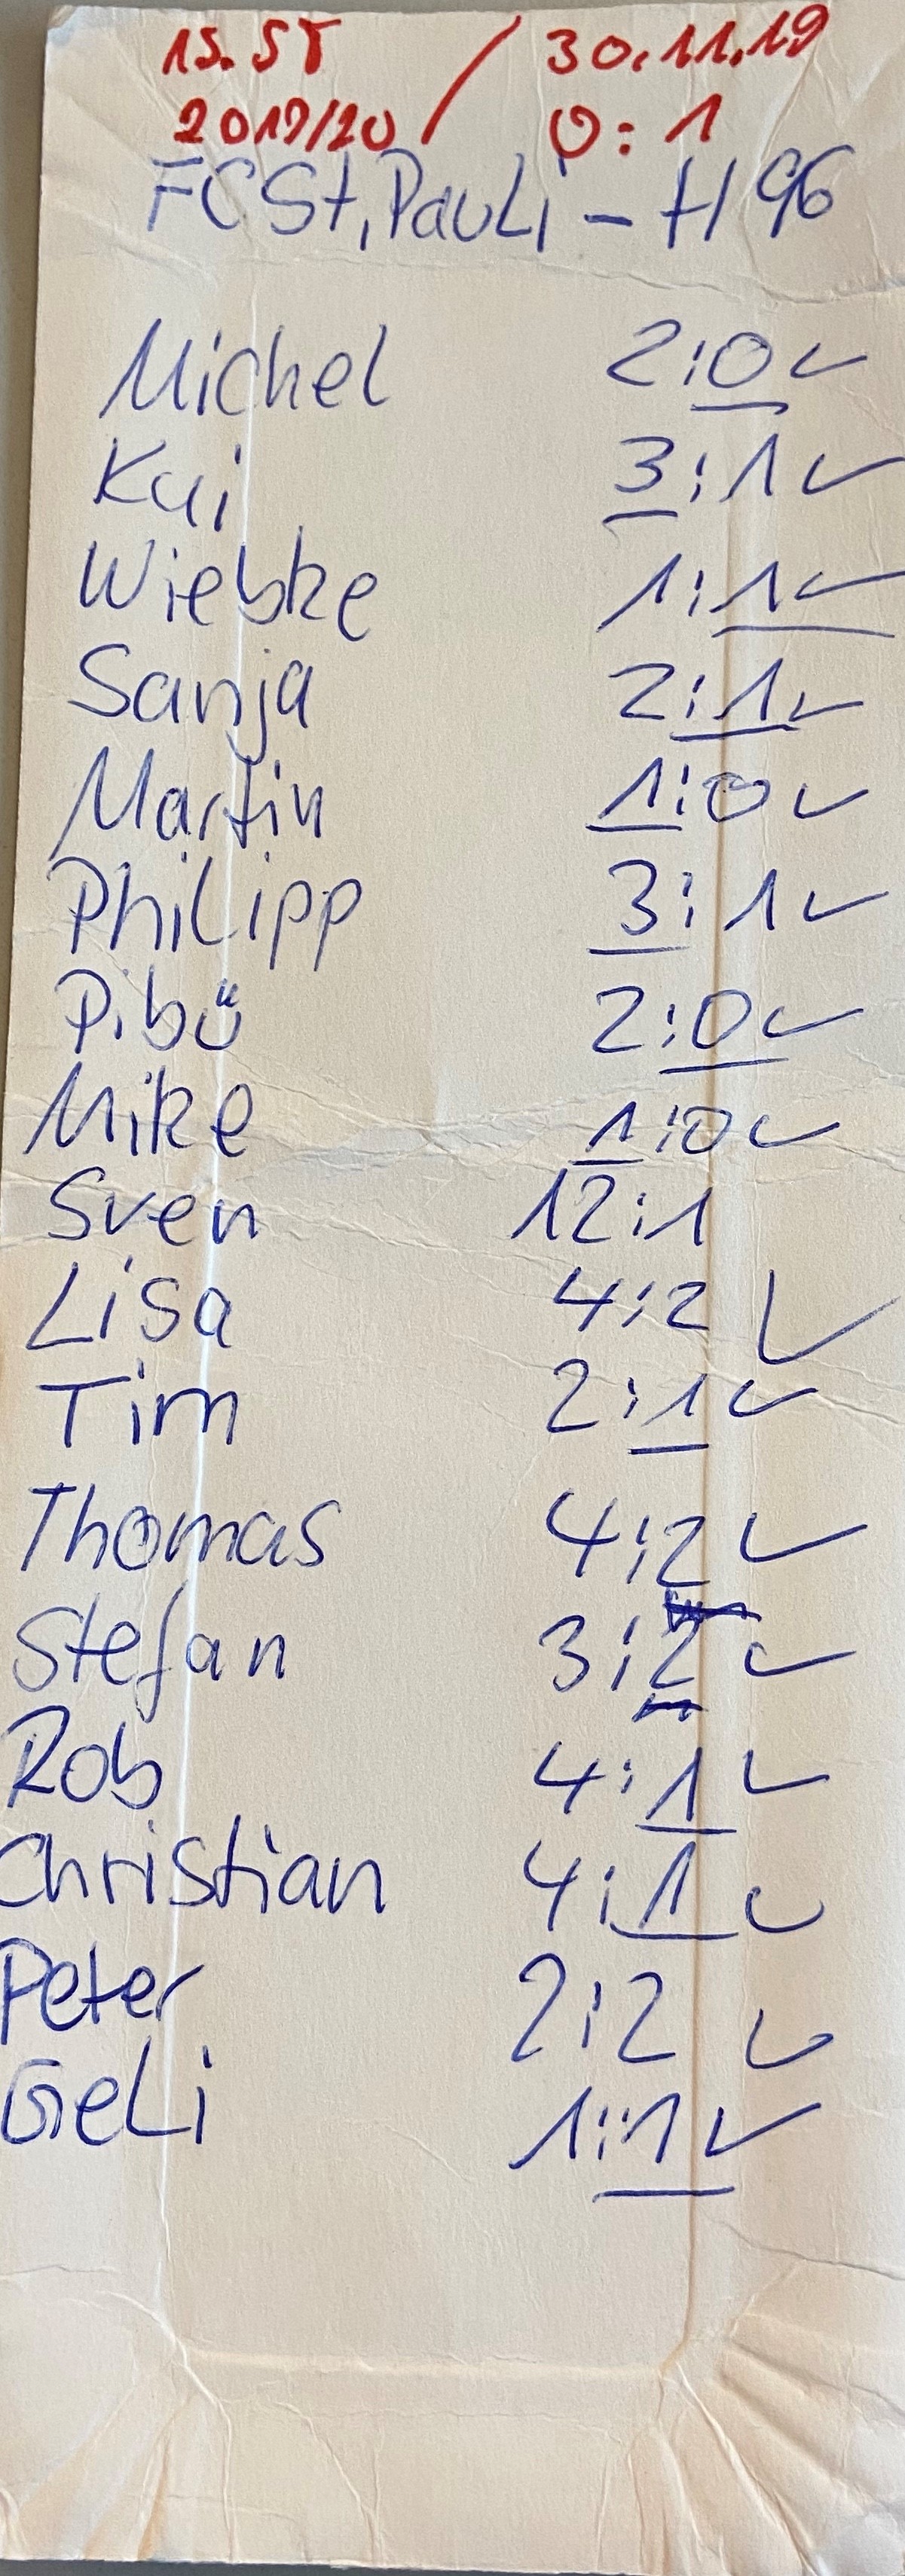 15. ST / 30.11.19
2019/20 0:1
FC St. Pauli - H96
Michel 2:0 ✓
Kai 3:1 ✓
Wiebke 1:1 ✓
Sanja 2:1 ✓
Martin 1:0 ✓
Philipp 3:1 ✓
Pibü 2:0 ✓
Mike 1:0 ✓
Sven 12:1
Lisa 4:2 ✓
Tim 2:1 ✓
Thomas 4:2 ✓
Stefan 3:2 ✓
Rob 4:1 ✓
Christian 4:1 ✓
Peter 2:2 ✓
Geli 1:1 ✓